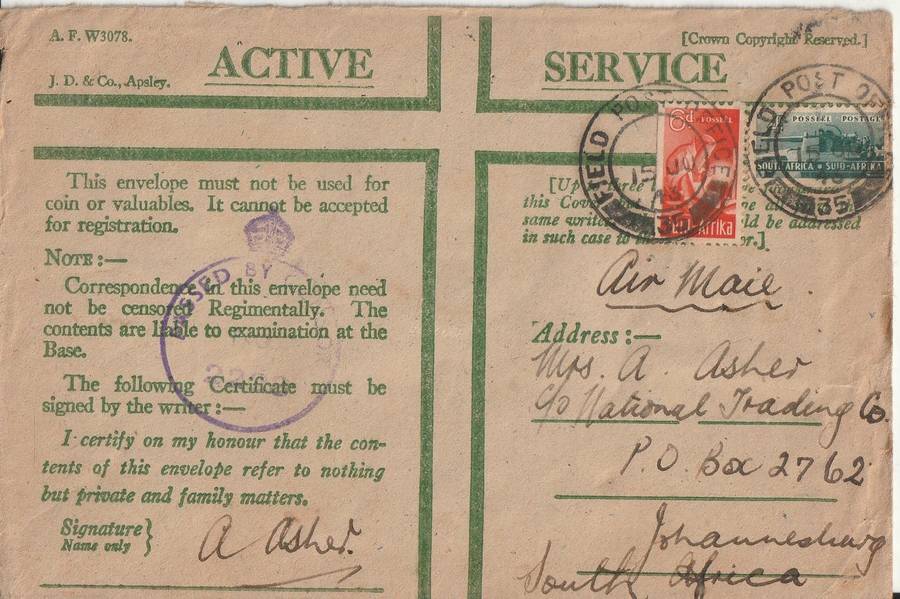 A. F. W3078.
J. D. & Co., Apsley.
ACTIVE
SERVICE
[Crown Copyright Reserved.]
This envelope must not be used for
coin or valuables. It cannot be accepted
for registration.
NOTE:—
Correspondence in this envelope need
not be censored Regimentally. The
contents are liable to examination at the
Base.
The following Certificate must be
signed by the writer:—
I certify on my honour that the con-
tents of this envelope refer to nothing
but private and family matters.
Signature}
Name only
A Asher.
BY
FIELD POST OFFICE
15 JU
35
6d POSSEËL
Afrika
FIELD POST OF
35
POSSEEL POSTAGE
SOUTH AFRICA * SUID-AFRIKA
this Cov
same writer
in such case to
be addressed
Air Mail.
Address:—
Mrs. A. Asher
c/o National Trading Co.
P.O Box 2762
Johannesburg
South Africa